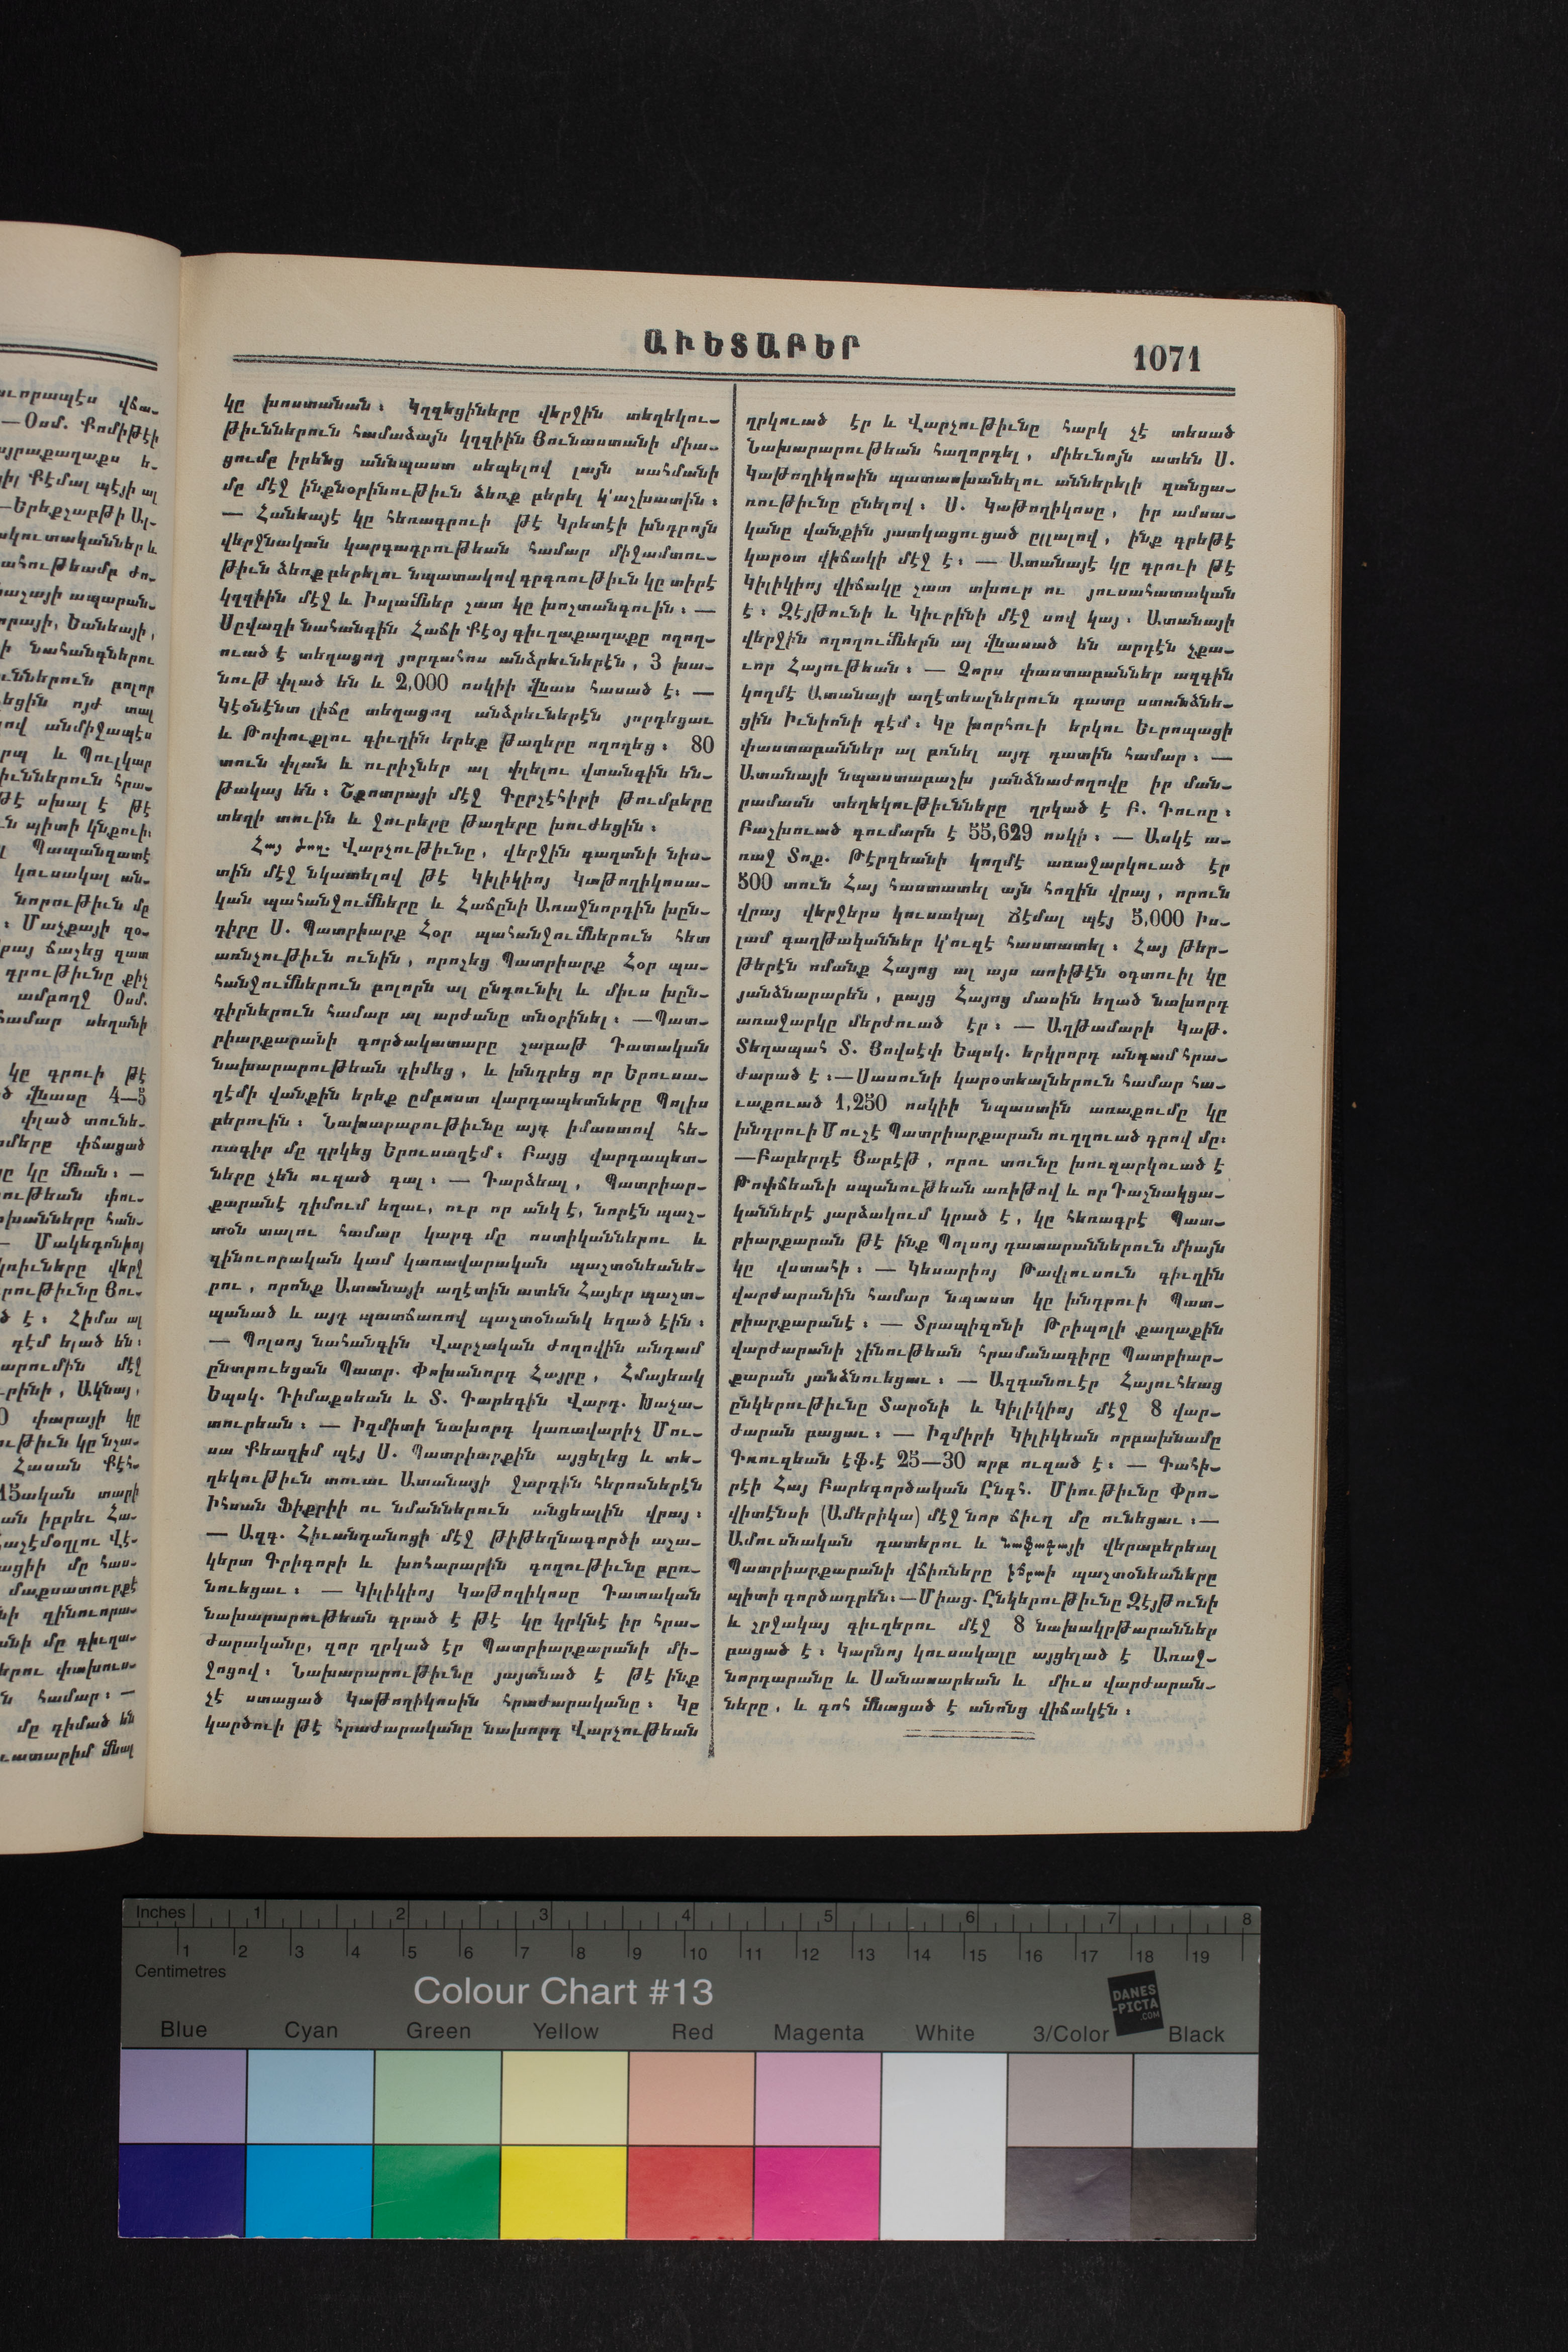 ԱՒԵՏԱԲԵՐ
1071
կը խոստանան։ Կղզեցիները վերջին տեղեկու–
թիւններուն համաձայն կղզիին Յունաստանի միա–
ցումը իրենց աննպաստ սեպելով լայն սահմանի
մը մէջ ինքնօրինութիւն ձեռք բերել կ'աշխատին։
— Հանեայէ կը հեռագրուի թէ Կրետէի խնդրոյն
վերջնական կարգադրութեան համար միջամտու–
թիւն ձեռք բերելու նպատակով գրգռութիւն կը տիրէ
կղզիին մէջ և Իսլամներ շատ կը խոշտանգուին։ —
Սըվազի նահանգին Հաճի Քէօյ գիւղաքաղաքը ողող–
ուած է տեղացող յորդահոս անձրեւներէն, 3 խա–
նութ փլած են և 2,000 ոսկիի վնաս հասած է։ —
Կէօնէնտ լիճը տեղացող անձրեւներէն յորդեցաւ
և Թոփուքլու գիւղին երեք թաղերը ողողեց։ 80
տուն փլան և ուրիշներ ալ փլելու վտանգին են–
թակայ են։ Շքոտրայի մէջ Գըրչէհիրի թումբերը
տեղի տուին և ջուրերը թաղերը խուժեցին։
Հայ ժող. Վարչութիւնը, վերջին գաղտնի նիս–
տին մէջ նկատելով թէ Կիլիկիոյ Կաթողիկոսա–
կան պահանջումները և Հաճընի Առաջնորդին խըն–
դիրը Ս. Պատրիարք Հօր պահանջումներուն հետ
առնչութիւն ունին, որոշեց Պատրիարք Հօր պա–
հանջումներուն բոլորն ալ ընդունիլ և միւս խըն–
դիրներուն համար ալ արժանը տնօրինել։ —Պատ–
րիարքարանի գործակատարը շաբաթ Դատական
նախարարութեան դիմեց, և խնդրեց որ Երուսա–
ղէմի վանքին երեք ըմբոստ վարդապետները Պոլիս
բերուին։ Նախարարութիւնը այդ իմաստով հե–
ռագիր մը ղրկեց Երուսաղէմ։ Բայց վարդապետ–
ները չեն ուզած գալ։ — Դարձեալ, Պատրիար–
քարանէ դիմում եղաւ, ուր որ անկ է, նորէն պաշ–
տօն տալու համար կարգ մը ոստիկաններու և
զինուորական կամ կառավարական պաշտօնեանե–
րու, որոնք Ատանայի աղէտին ատեն Հայեր պաշտ–
պանած և այդ պատճառով պաշտօնանկ եղած էին։
— Պոլսոյ նահանգին Վարչական ժողովին անդամ
ընտրուեցան Պատր. Փոխանորդ Հայրը, Հմայեակ
Եպսկ. Դիմաքսեան և Տ. Գարեգին Վարդ. Խաչա–
տուրեան։ — Իզմիտի նախորդ կառավարիչ Մու–
սա Քեազիմ պէյ Ս. Պատրիարքին այցելեց և տե–
ղեկութիւն տուաւ Ատանայի ջարդին հերոսներէն
Իհսան Ֆիքրիի ու նմաններուն անցեալին վրայ։
— Ազգ. Հիւանդանոցի մէջ թիթեղնագործի աշա–
կերտ Գրիգորի և խոհարարին գողութիւնը բըռ–
նուեցաւ։ — Կիլիկիոյ Կաթողիկոսը Դատական
նախարարութեան գրած է թէ կը կրկնէ իր հրա–
ժարականը, զոր ղրկած էր Պատրիարքարանի մի–
ջոցով։ Նախարարութիւնը յայտնած է թէ ինք
չէ ստացած Կաթողիկոսին հրաժարականը։ Կը
կարծուի թէ հրաժարականը նախորդ Վարչութեան
ղրկուած էր և Վարչութիւնը հարկ չէ տեսած
Նախարարութեան հաղորդել, միեւնոյն ատեն Ս.
Կաթողիկոսին պատասխանելու աններելի զանցա–
ռութիւնը ընելով։ Ս. Կաթողիկոսը, իր ամսա–
կանը վանքին յատկացուցած ըլլալով, ինք գրեթէ
կարօտ վիճակի մէջ է։ — Ատանայէ կը գրուի թէ
Կիլիկիոյ վիճակը շատ տխուր ու յուսահատական
է։ Զէյթունի և Կիւրինի մէջ սով կայ։ Ատանայի
վերջին ողողումներն ալ վնասած են արդէն չքա–
ւոր Հայութեան։ — Չորս փաստաբաններ ազգին
կողմէ Ատանայի աղէտեալներուն դատը ստանձնե–
ցին Իւնիոնի դէմ։ Կը խորհուի երկու Եւրոպացի
փաստաբաններ ալ բռնել այդ դատին համար։ —
Ատանայի նպաստաբաշխ յանձնաժողովը իր ման–
րամասն տեղեկութիւնները ղրկած է Բ. Դուռը։
Բաշխուած գումարն է 55,629 ոսկի։ — Ասկէ ա–
ռաջ Տոք. Թէրզեանի կողմէ առաջարկուած էր
500 տուն Հայ հաստատել այն հողին վրայ, որուն
վրայ վերջերս կուսակալ Ճէմալ պէյ 5,000 Իս–
լամ գաղթականներ կ'ուզէ հաստատել։ Հայ թեր–
թերէն ոմանք Հայոց ալ այս առիթէն օգտուիլ կը
յանձնարարեն, բայց Հայոց մասին եղած նախորդ
առաջարկը մերժուած էր։ — Աղթամարի Կաթ.
Տեղապահ Տ. Յովսէփ Եպսկ. երկրորդ անգամ հրա–
ժարած է։—Սասունի կարօտեալներուն համար հա–
ւաքուած 1,250 ոսկիի նպաստին առաքումը կը
խնդրուի Մուշէ Պատրիարքարան ուղղուած գրով մը։
—Բաբերդէ Յարէթ, որու տունը խուզարկուած է
Թոփճեանի սպանութեան առիթով և որ Դաշնակցա–
կաններէ յարձակում կրած է, կը հեռագրէ Պատ–
րիարքարան թէ ինք Պոլսոյ դատարաններուն միայն
կը վստահի։ — Կեսարիոյ Թավլուսուն գիւղին
վարժարանին համար նպաստ կը խնդրուի Պատ–
րիարքարանէ։ — Տրապիզոնի Թրիպոլի քաղաքին
վարժարանի շինութեան հրամանագիրը Պատրիար–
քարան յանձնուեցաւ։ — Ազգանուէր Հայուհեաց
ընկերութիւնը Տարօնի և Կիլիկիոյ մէջ 8 վար–
ժարան բացաւ։ — Իզմիրի Կիլիկեան որբախնամը
Գռուզեան էֆ.է 25—30 որբ ուզած է։ — Գահի–
րէի Հայ Բարեգործական Ընդհ. Միութիւնը Փրո–
վիտէնսի (Ամերիկա) մէջ նոր ճիւղ մը ունեցաւ։—
Ամուսնական դատերու և նաֆագայի վերաբերեալ
Պատրիարքարանի վճիռները իճրայի պաշտօնեաները
պիտի գործադրեն։—Միաց. Ընկերութիւնը Զէյթունի
և շրջակայ գիւղերու մէջ 8 նախակրթարաններ
բացած է։ Կարնոյ կուսակալը այցելած է Առաջ–
նորդարանը և Սանասարեան և միւս վարժարան–
ները, և գոհ մնացած է անոնց վիճակէն։
Inches 1 2 3 4 5 6 7 8
1 2 3 4 5 6 7 8 9 10 11 12 13 14 15 16 17 18 19
Centimetres
Colour Chart #13
DANES
-PICTA
.COM
Blue Cyan Green Yellow Red Magenta White 3/Color Black